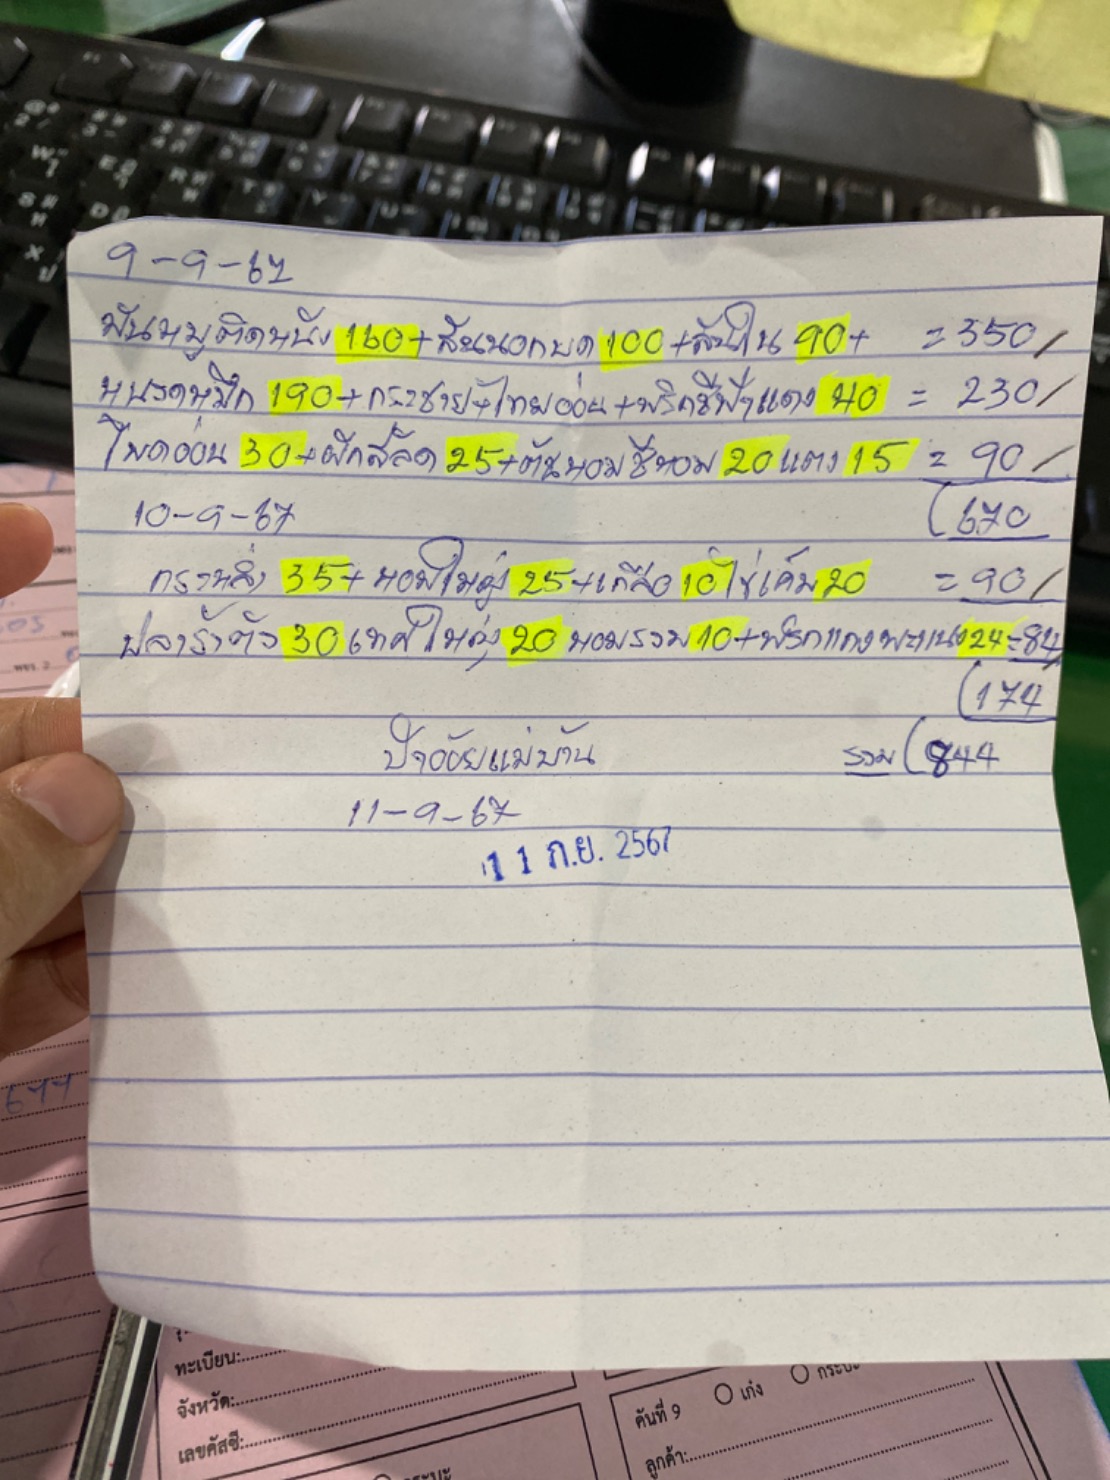 9-9-67
มันหมูติดหนัง 160+สันนอกบด 100+สันใน 90+ =350/
หนวดหมึก 190+กระชาย+ไทยอ่อน+พริกชีฟ้าแดง 40 = 230/
โพดอ่อน 30+ผักสลัด 25+ต้นหอมชีหอม 20 แตง 15 = 90/
(670
10-9-67
35+หอมใหญ่ 25+เกลือ 10 ไข่เค็ม 20 =90/
ปลาร้าตัว 30 เทศใหญ่ 20 หอมรวม 10+พริกแกงพะแนง 24=84/
(174
แม่บ้าน รวม (844
11-9-67
11 ก.ย. 2567
ทะเบียน:
จังหวัด:
เลขคัสซี:
กระบะ
เก๋ง กระบะ
คันที่ 9
ลูกค้า: